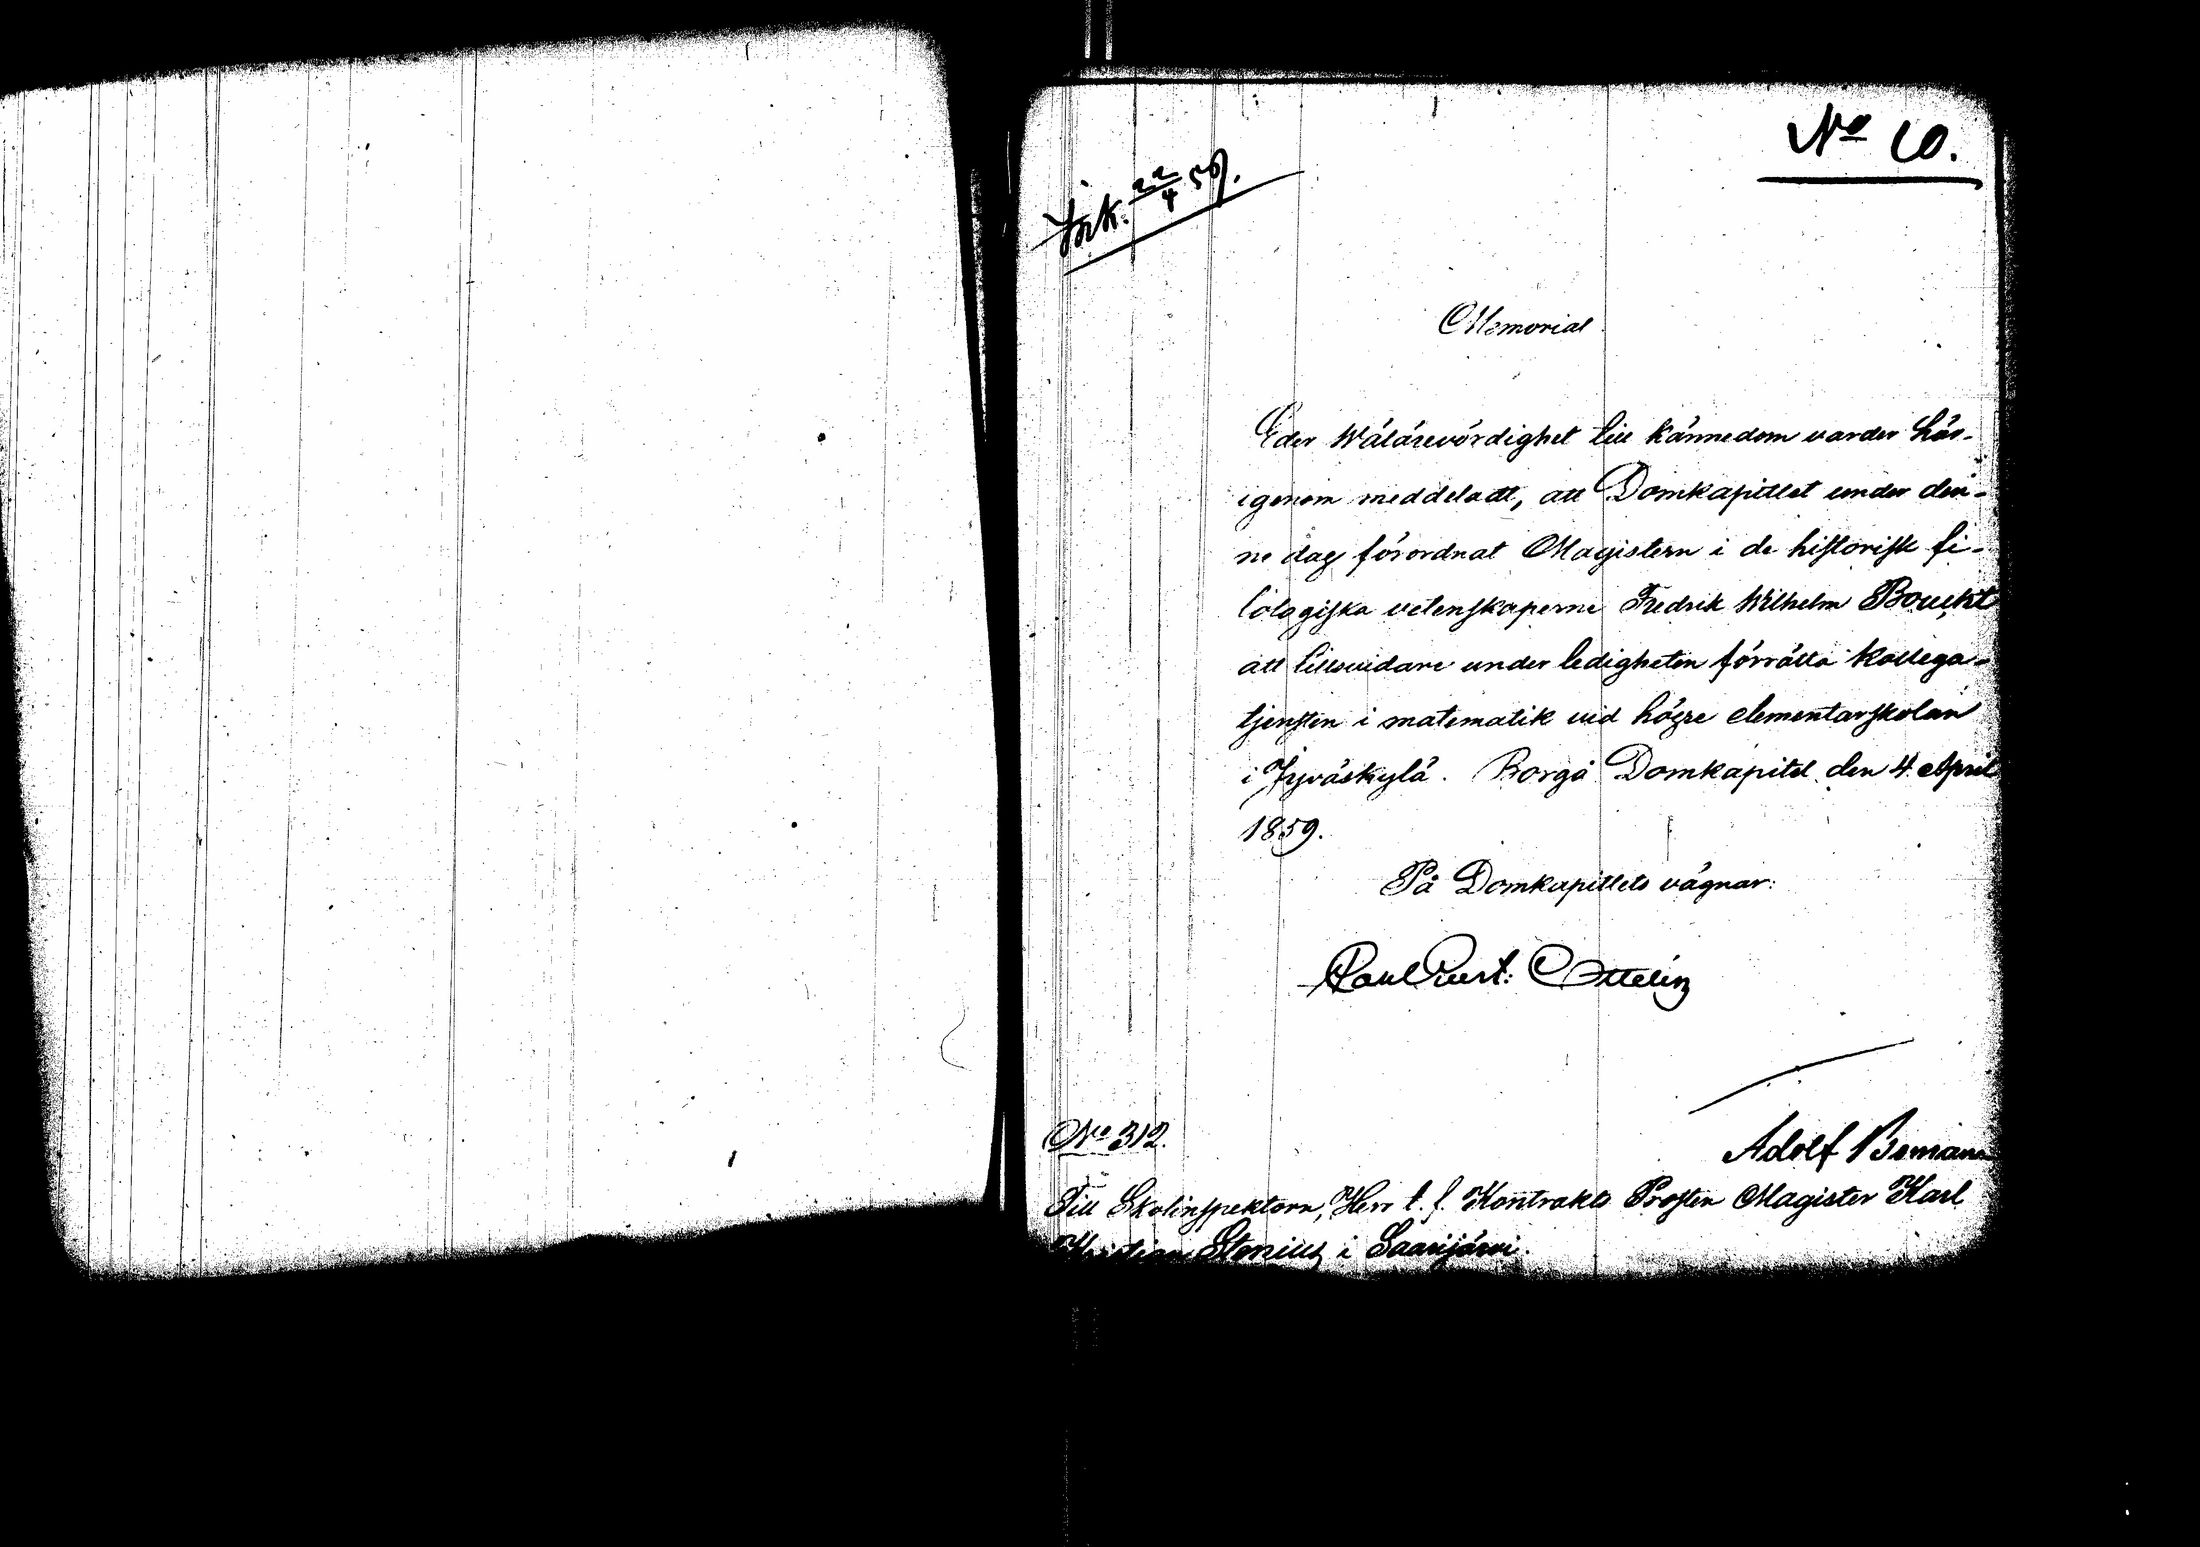 No 10.
Ink. 22/4 59.
Memorial
Eder Wälärevördighet till kännedom varder här-
igenom meddeladt, att Domkapitlet under den-
ne dag förordnat Magistern i de historisk fi-
lologiska vetenskaperne Fredrik Wilhelm Boucht
att tillsvidare under ledigheten förrätta kollega-
tjensten i matematik vid högre elementarskolan
i Jyväskylä. Borgå Domkapitel den 4 April
1859.
På Domkapitlets vägnar:
Paul Ottelin
No 312.
Adolf
Till Skolinspektorn, Herr t. f. Kontrakts Prosten Magister Karl
Kristian Stenius i Saarijärvi.